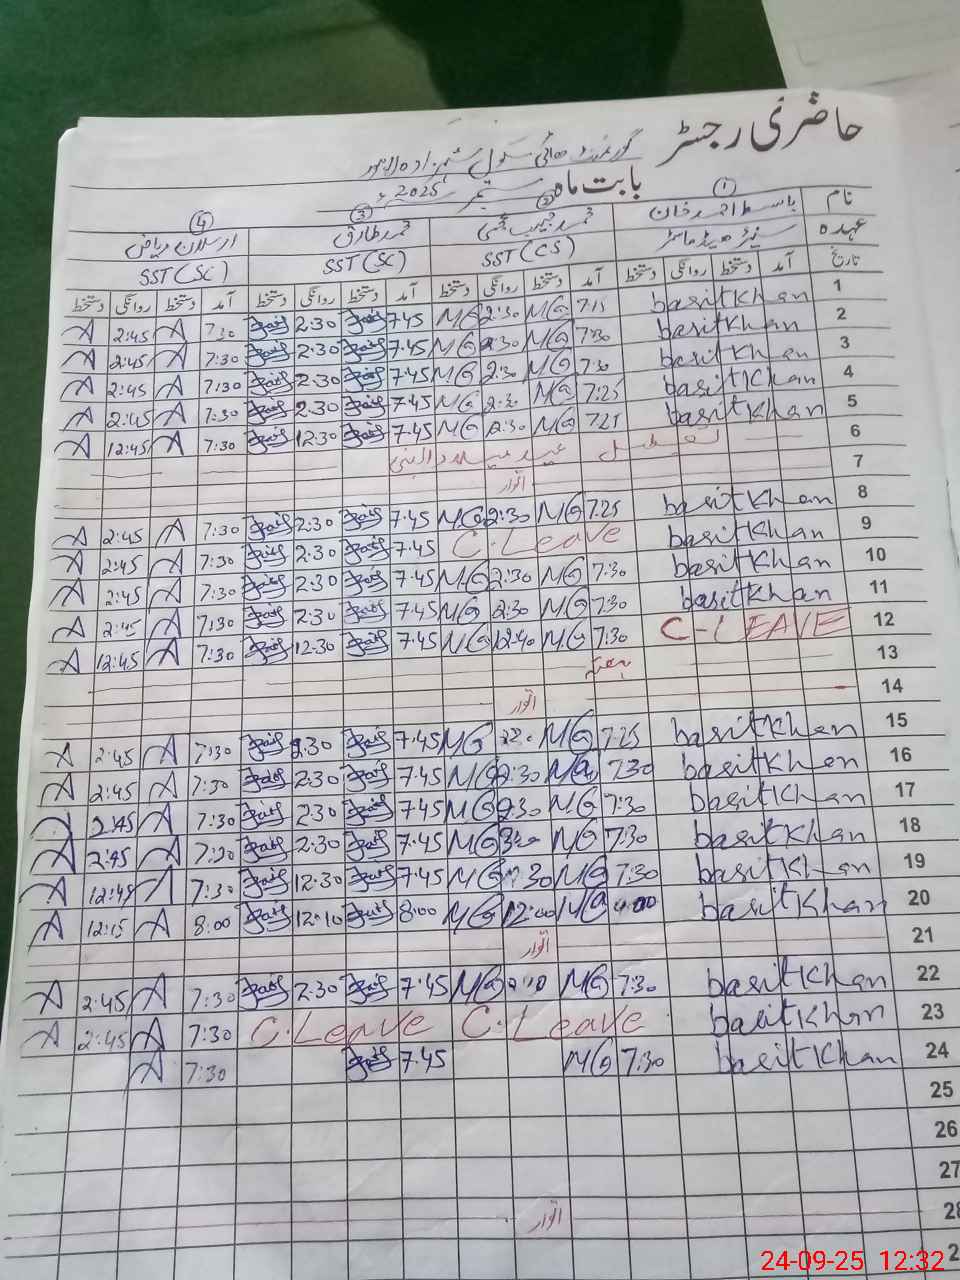 حاضری رجسٹر
گورنمنٹ ہائی سکول
بابت ماہ ستمبر 2025ء
نام ① باسط احمد خان ② محمد ③ محمد طارق ④ ارسلان ریاض
عہدہ سینئر ہیڈ ماسٹر SST (CS) SST (SC) SST (SC)
تاریخ آمد دستخط روانگی دستخط آمد دستخط روانگی دستخط آمد دستخط روانگی دستخط آمد دستخط روانگی دستخط
1 basitkhan 7:15 MG 2:30 MG 7:45 2:30 7:30 A 2:45 A
2 basitkhan 7:30 MG 2:30 MG 7:45 2:30 7:30 A 2:45 A
3 basitkhan 7:30 MG 2:30 MG 7:45 2:30 7:30 A 2:45 A
4 basitkhan 7:25 MG 2:30 MG 7:45 2:30 7:30 A 2:45 A
5 basitkhan 7:25 MG 2:30 MG 7:45 12:30 7:30 A 12:45 A
6 تعطیل عید میلادالنبی
7 اتوار
8 basitkhan 7:25 MG 2:30 MG 7:45 2:30 7:30 A 2:45 A
9 basitkhan C.Leave 7:45 2:30 7:30 A 2:45 A
10 basitkhan 7:30 MG 2:30 MG 7:45 2:30 7:30 A 2:45 A
11 basitkhan 7:30 MG 2:30 MG 7:45 2:30 7:30 A 2:45 A
12 C-LEAVE 7:30 MG 12:40 MG 7:45 12:30 7:30 A 12:45 A
13 ہفتہ
14 اتوار
15 basitkhan 7:25 MG MG 7:45 2:30 7:30 A 2:45 A
16 basitkhan 7:30 MG 2:30 MG 7:45 2:30 7:30 A 2:45 A
17 basitkhan 7:30 MG 2:30 MG 7:45 2:30 7:30 A 2:45 A
18 basitkhan 7:30 MG MG 7:45 2:30 7:30 A 2:45 A
19 basitkhan 7:30 MG MG 7:45 12:30 7:30 A 12:45 A
20 basitkhan MG 12:00 MG 8:00 12:10 8:00 A 12:15 A
21 اتوار
22 basitkhan 7:30 MG MG 7:45 2:30 7:30 A 2:45 A
23 basitkhan C.Leave C.Leave 7:30 A 2:45 A
24 basitkhan 7:30 MG 7:45 7:30 A
25
26
27
28 اتوار
24-09-25 12:32